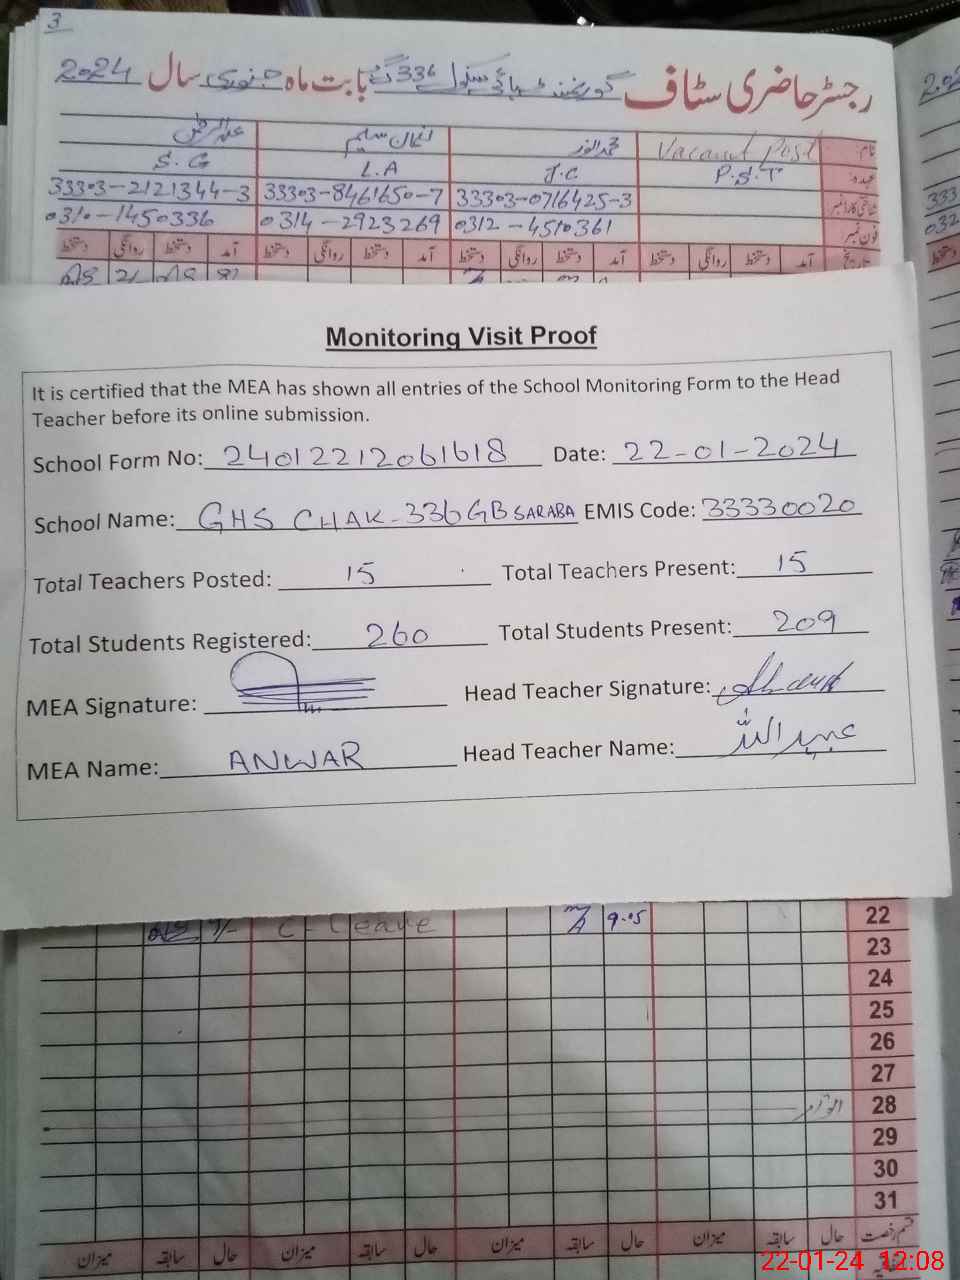 3
رجسٹر حاضری سٹاف گورنمنٹ ہائی سکول 336 گ ب بابت ماہ جنوری سال 2024
نام Vacant Post محمد انور سلیم
عہدہ P.S.T J.C L.A S.G
شناختی کارڈ نمبر 33303-0716425-3 33303-8461650-7 33303-2121344-3
فون نمبر 0312-4510361 0314-2923269 0310-1450336
تاریخ آمد دستخط روانگی دستخط آمد دستخط روانگی دستخط آمد دستخط روانگی دستخط آمد دستخط روانگی دستخط
Monitoring Visit Proof
It is certified that the MEA has shown all entries of the School Monitoring Form to the Head
Teacher before its online submission.
School Form No: 24012212061618 Date: 22-01-2024
School Name: GHS CHAK-336GB SARABA EMIS Code: 33330020
Total Teachers Posted: 15 Total Teachers Present: 15
Total Students Registered: 260 Total Students Present: 209
MEA Signature: Head Teacher Signature:
MEA Name: ANWAR Head Teacher Name: عبید اللہ
C-Leave 9-05 22
23
24
25
26
27
اتوار 28
29
30
31
قسم رخصت حال سابقہ میزان حال سابقہ میزان حال سابقہ میزان حال سابقہ میزان
22-01-24 12:08